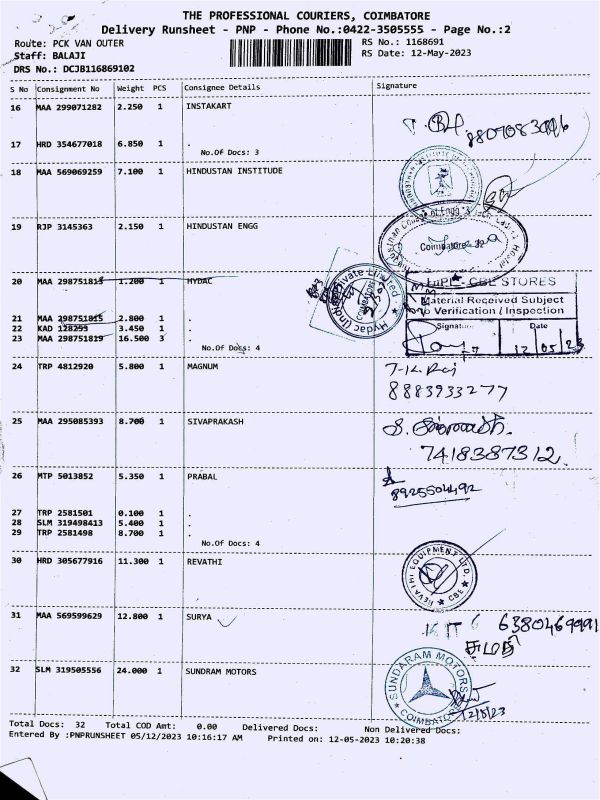 THE PROFESSIONAL COURIERS, COIMBATORE
Delivery Runsheet - PNP - Phone No.:0422-3505555 - Page No.:2
Route: PCK VAN OUTER
RS No.: 1168691
Staff: BALAJI
RS Date: 12-May-2023
DRS No.: DCJB116869102
S No Consignment No Weight PCS Consignee Details Signature
16 MAA 299071282 2.250 1 INSTAKART
17 HRD 354677018 6.850 1 .
No.Of Docs: 3
18 MAA 569069259 7.100 1 HINDUSTAN INSTITUDE
19 RJP 3145363 2.150 1 HINDUSTAN ENGG
Coimbatore
20 MAA 298751813 1.200 1 HYDAC
HIPL - CBE STORES
Material Received Subject
to Verification / Inspection
Signature Date
12 05 23
21 MAA 298751815 2.800 1 .
22 KAD 128293 3.450 1 .
23 MAA 298751819 16.500 3 .
No.Of Docs: 4
24 TRP 4812920 5.800 1 MAGNUM
8883933277
25 MAA 295085393 8.700 1 SIVAPRAKASH
7418387312
26 MTP 5013852 5.350 1 PRABAL
8925504492
27 TRP 2581501 0.100 1 .
28 SLM 319498413 5.400 1 .
29 TRP 2581498 8.700 1 .
No.Of Docs: 4
30 HRD 305677916 11.300 1 REVATHI
REVATHI EQUIPMENT LTD. CBE
31 MAA 569599629 12.800 1 SURYA
6380469991
32 SLM 319505556 24.000 1 SUNDRAM MOTORS
SUNDARAM MOTORS COIMBATORE
12/5/23
Total Docs: 32 Total COD Amt: 0.00 Delivered Docs: Non Delivered Docs:
Entered By :PNPRUNSHEET 05/12/2023 10:16:17 AM Printed on: 12-05-2023 10:20:38